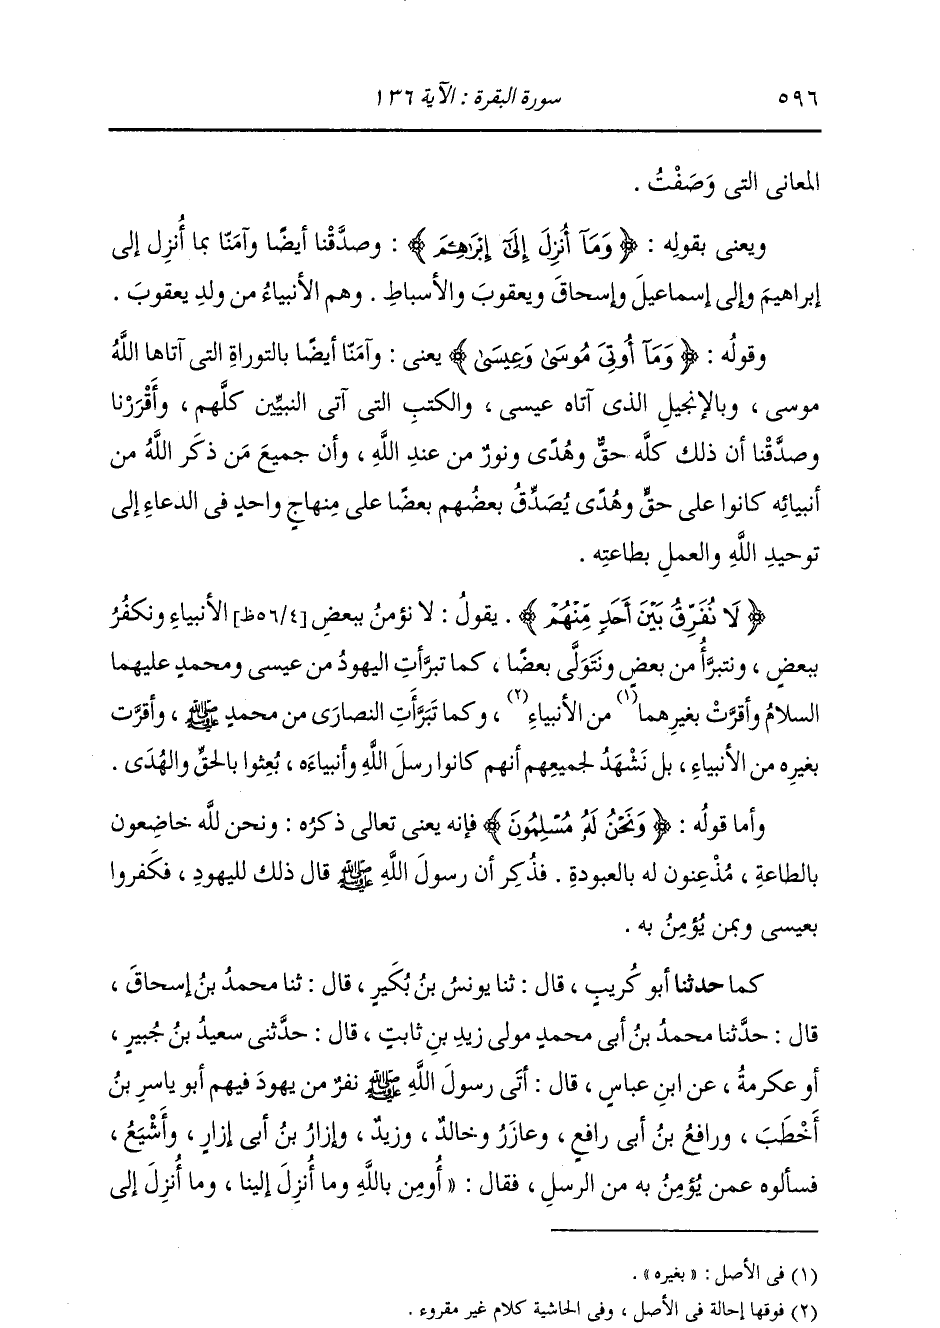 ٥٩٦ سورة البقرة : الآية ١٣٦
المعانى التى وَصَفْتُ .
ويعنى بقولِه : ﴿ وَمَآ أُنزِلَ إِلَىٰٓ إِبْرَٰهِـۧمَ ﴾ : وصدَّقْنا أيضًا وآمَنّا بما أُنزِل إلى
إبراهيمَ وإلى إسماعيلَ وإسحاقَ ويعقوبَ والأسباطِ . وهم الأنبياءُ من ولدِ يعقوبَ .
وقولُه : ﴿ وَمَآ أُوتِىَ مُوسَىٰ وَعِيسَىٰ ﴾ يعنى : وآمَنّا أيضًا بالتوراةِ التى آتاها اللَّهُ
موسى ، وبالإنجيلِ الذى آتاه عيسى ، والكتبِ التى آتى النبيِّين كلَّهم ، وأَقْرَرْنا
وصدَّقْنا أن ذلك كلَّه حقٌّ وهُدًى ونورٌ من عندِ اللَّهِ ، وأن جميعَ مَن ذكَر اللَّهُ من
أنبيائِه كانوا على حقٍّ وهُدًى يُصَدِّقُ بعضُهم بعضًا على مِنهاجٍ واحدٍ فى الدعاءِ إلى
توحيدِ اللَّهِ والعملِ بطاعتِه .
﴿ لَا نُفَرِّقُ بَيْنَ أَحَدٍ مِّنْهُمْ ﴾ . يقولُ : لا نؤمنُ ببعضِ [٥٦/٤ظ] الأنبياءِ ونكفُرُ
ببعضٍ ، ونتبرَّأُ من بعضٍ ونَتَولَّى بعضًا ، كما تبرَّأتِ اليهودُ من عيسى ومحمدٍ عليهما
السلامُ وأقرَّتْ بغيرِهما(١) من الأنبياءِ(٢) ، وكما تَبَرَّأَتِ النصارَى من محمدٍ ﷺ ، وأقرَّت
بغيرِه من الأنبياءِ ، بل نَشْهَدُ لجميعِهم أنهم كانوا رسلَ اللَّهِ وأنبياءَه ، بُعِثوا بالحقِّ والهُدَى .
وأما قولُه : ﴿ وَنَحْنُ لَهُۥ مُسْلِمُونَ ﴾ فإنه يعنى تعالى ذكرُه : ونحن للَّه خاضِعون
بالطاعةِ ، مُذْعِنون له بالعبودةِ . فذُكِر أن رسولَ اللَّهِ ﷺ قال ذلك لليهودِ ، فكَفروا
بعيسى وبمن يُؤمِنُ به .
كما حدثنا أبو كُريبٍ ، قال : ثنا يونسُ بنُ بُكَيرٍ ، قال : ثنا محمدُ بنُ إسحاقَ ،
قال : حدَّثنا محمدُ بنُ أبى محمدٍ مولى زيدِ بنِ ثابتٍ ، قال : حدَّثنى سعيدُ بنُ جُبيرٍ ،
أو عكرمةُ ، عن ابنِ عباسٍ ، قال : أتَى رسولَ اللَّهِ ﷺ نفرٌ من يهودَ فيهم أبو ياسرِ بنُ
أَخْطَبَ ، ورافعُ بنُ أبى رافعٍ ، وعازَرُ وخالدٌ ، وزيدٌ ، وإزارُ بنُ أبى إزارٍ ، وأَشْيَعُ ،
فسألوه عمن يُؤمِنُ به من الرسلِ ، فقال : « أُومِن باللَّهِ وما أُنزِلَ إلينا ، وما أُنزِلَ إلى
(١) فى الأصل : « بغيره » .
(٢) فوقها إحالة فى الأصل ، وفى الحاشية كلام غير مقروء .